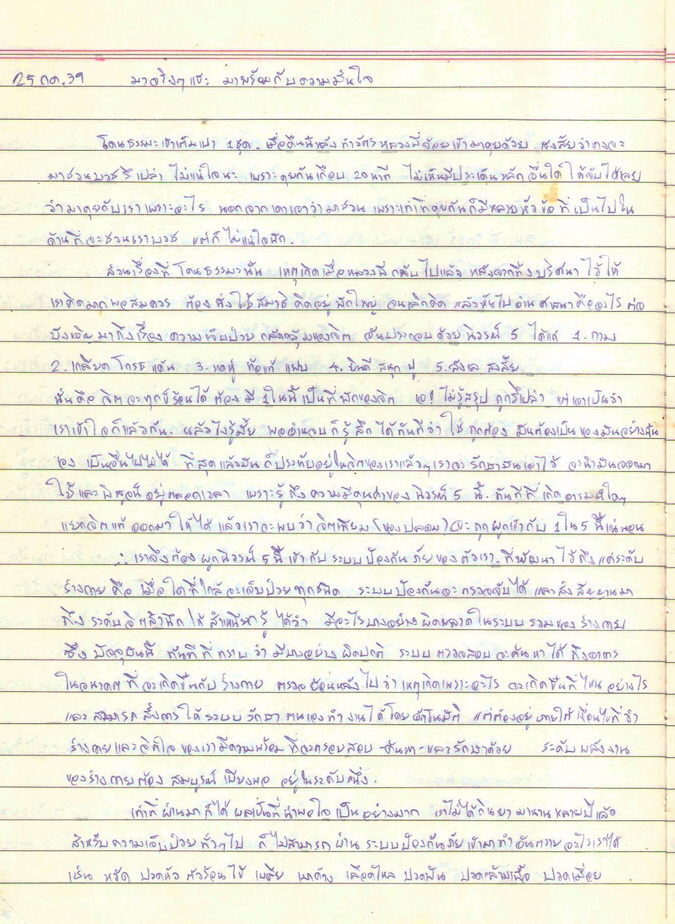 25 กค. 39 มาจริงๆ แฮะ มาพร้อมกับความมั่นใจ
โดนธรรมะเข้าเต็มเปา 1 ชุด. เมื่อคืนนี้หลังทำวัตร หลวงพี่น้อยเข้ามาคุยด้วย. สงสัยว่าคงจะ
มาชวนบวชรึเปล่า ไม่แน่ใจนะ เพราะคุยกันเกือบ 20 นาที ไม่เห็นมีประเด็นหลักอื่นใดให้จับได้เลย
ว่ามาคุยกับเราเพราะอะไร นอกจากเดาเอาว่ามาชวน เพราะเท่าที่คุยกันก็มีหลายหัวข้อที่เป็นไปใน
ด้านที่จะชวนเราบวช แต่ก็ไม่แน่ใจนัก.
ส่วนเรื่องที่โดนธรรมะนั้น เหตุเกิดเมื่อหลวงพี่กลับไปแล้ว หลังจากทิ้งปริศนาไว้ให้
เราคิดมากพอสมควร ต้องนั่งใช้สมาธิคิดอยู่พักใหญ่ จนเลิกคิด แล้วหันไปอ่านศาสนาคืออะไร ต่อ
บังเอิญมาถึงเรื่องความเจ็บป่วย กลัดกลุ้มของจิต อันประกอบด้วยนิวรณ์ 5 ได้แก่ 1. กาม
2. เกลียด โกรธ แค้น 3. หดหู่ ท้อแท้ แฟบ 4. ยินดี สนุก ฟู 5. ลังเล สงสัย
นั่นคือ จิตจะทุกข์ร้อนได้ ต้องมี 1 ในนี้เป็นที่พักของจิต เอ! ไม่รู้สรุปถูกรึเปล่า แต่เอาเป็นว่า
เราเข้าใจก็แล้วกัน. แล้วไงรู้มั้ย พออ่านจบก็รู้สึกได้ทันทีว่า ใช่ ถูกต้อง มันต้องเป็นของมันอย่างนั้น
เอง เป็นอื่นไปไม่ได้ ที่สุดแล้วมันก็ประทับอยู่ในจิตของเราแล้วๆ เราจะรักษามันเอาไว้ จะนำมันออกมา
ใช้และพิสูจน์อยู่ตลอดเวลา เพราะรู้ถึงความมีคุณค่าของนิวรณ์ 5 นี้. ทันทีที่เกิดอารมณ์ใดๆ
แยกจิตแท้ออกมาให้ได้ แล้วเราจะพบว่า จิตเทียม (ของปลอม) จะถูกผูกเข้ากับ 1 ใน 5 นี้แน่นอน
∴ เราจึงต้องผูกนิวรณ์ 5 นี้ เข้ากับระบบป้องกันภัยของตัวเรา. ที่พัฒนาไว้ถึงแค่ระดับ
ร่างกาย คือ เมื่อใดที่ใกล้จะเจ็บป่วยทุกชนิด ระบบป้องกันจะตรวจจับได้ และส่งสัญญาณมา
ถึงระดับจิตสำนึก ให้สำเหนียกรู้ได้ว่า มีอะไรบางอย่างผิดพลาดในระบบรวมของร่างกาย
ซึ่งปัจจุบันนี้ ทันทีที่ทราบว่ามีบางอย่างผิดปกติ ระบบตรวจสอบจะค้นหาได้ถึงอาการ
ในอนาคตที่จะเกิดขึ้นกับร่างกาย ตรวจย้อนหลังไปว่าเหตุเกิดเพราะอะไร จะเกิดขึ้นที่ไหน อย่างไร
และสามารถสั่งการให้ระบบรักษาตนเองทำงานได้โดยอัตโนมัติ แต่ต้องอยู่ภายใต้เงื่อนไขที่ว่า
ร่างกายและจิตใจของเรามีความพร้อมที่จะตรวจสอบ-ค้นหา-และรักษาด้วย ระดับพลังงาน
ของร่างกายต้องสมบูรณ์เพียงพออยู่ในระดับหนึ่ง.
เท่าที่ผ่านมาก็ได้ผลเป็นที่น่าพอใจเป็นอย่างมาก เราไม่ได้กินยามานานหลายปีแล้ว
สำหรับความเจ็บป่วยทั่วๆไป ก็ไม่สามารถผ่านระบบป้องกันภัยเข้ามาทำอันตรายอะไรเราได้
เช่น หวัด ปวดหัว ตัวร้อน ไข้ เพลีย เลือดไหล ปวดฟัน ปวดกล้ามเนื้อ ปวดเมื่อย